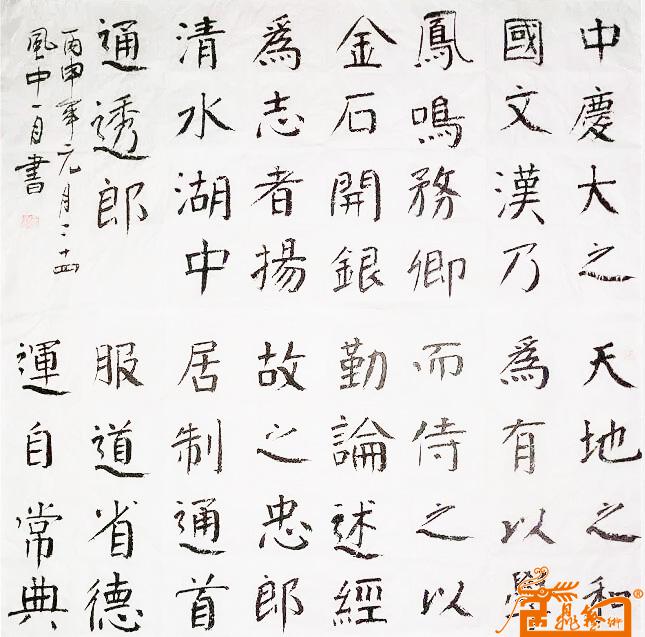 中慶大之天地之和
國文漢乃爲有以學
鳳鳴務卿而侍之以
金石開銀勤論述經
爲志者揚故之忠郎
清水湖中居制通首
通透郎服道省德
運自常典
丙申年元月二十四
風中一月書